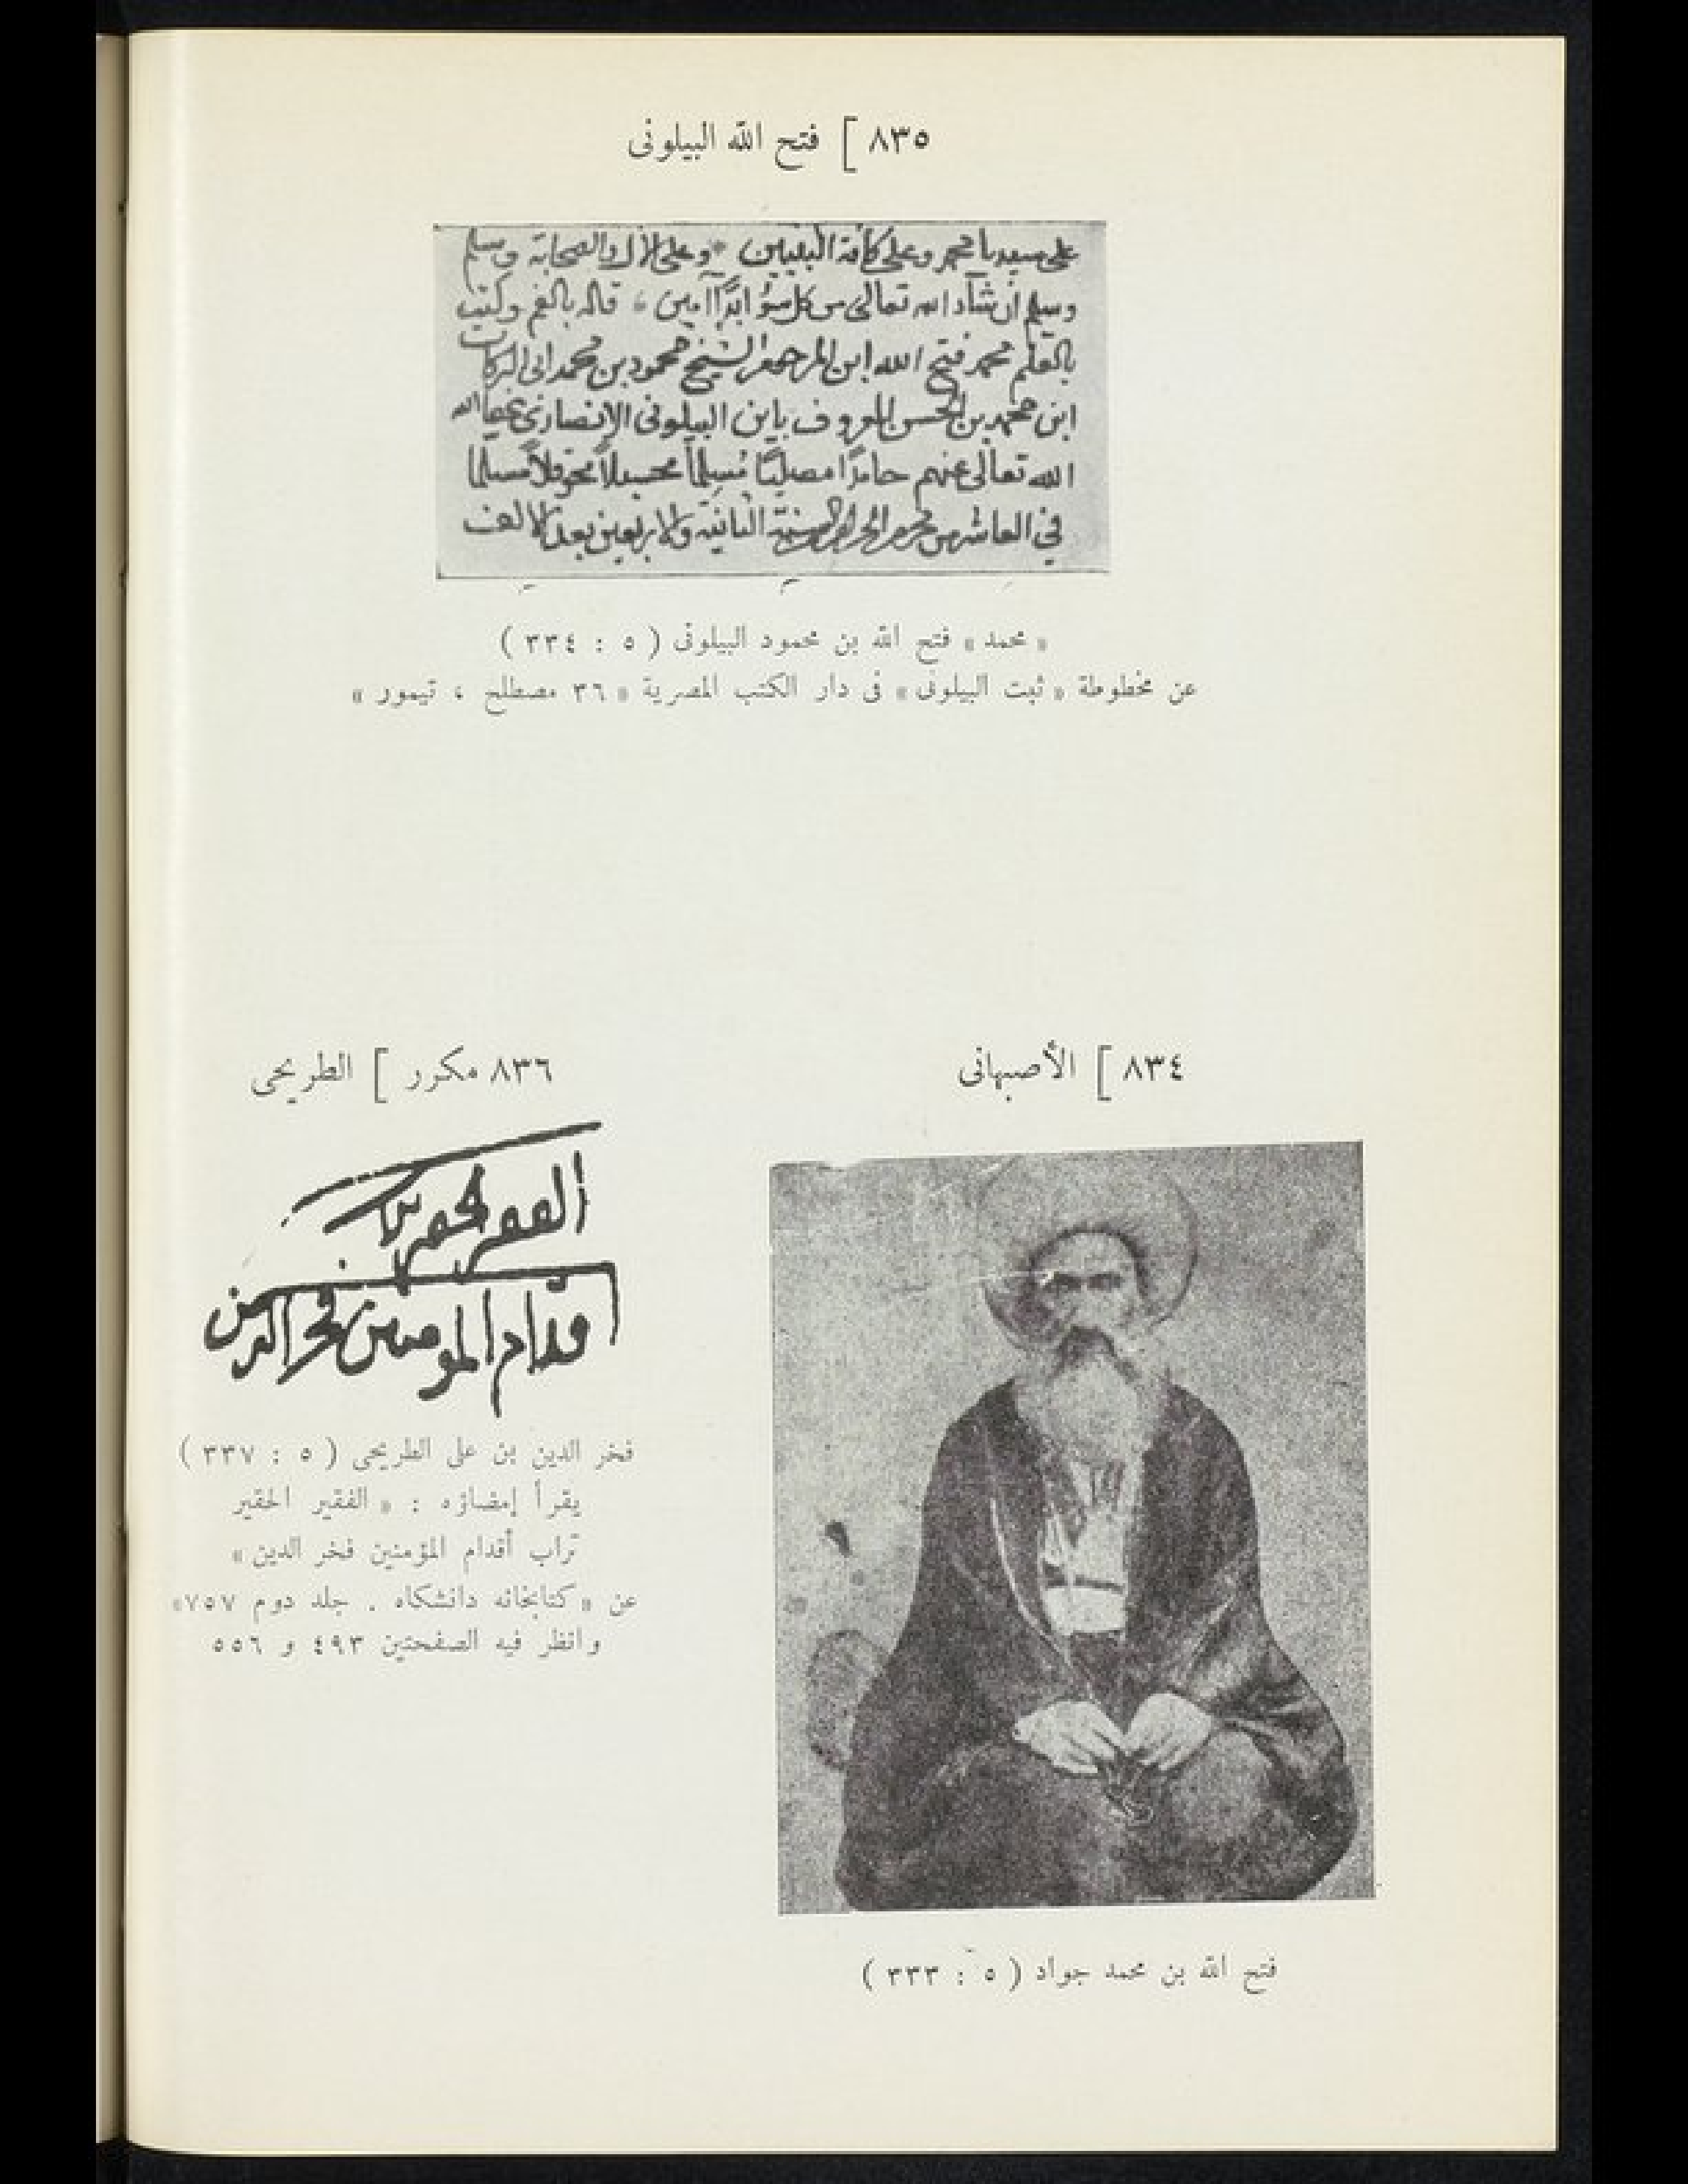 ٨٣٥ ] فتح الله البيلونى
على سيدنا محمد وعلى كافة النبيين * وعلى الآل والصحابة وسلم
وسلم ان شاء الله تعالى من كل سوء ابدًا آمين ، قاله بالفم وكتب
بالقلم محمد فتح الله ابن المرحوم الشيخ محمود بن محمد ابى البركات
ابن محمد بن الحسن المعروف بابن البيلونى الانصارى عفا الله
الله تعالى عنهم حامدًا مصليًا مسلمًا محسبلاً محوقلاً مسلما
في العاشر من محرم الحرام السنة الثانية والاربعين بعد الالف
« محمد » فتح الله بن محمود البيلونى ( ٥ : ٣٣٤ )
عن مخطوطة « ثبت البيلونى » فى دار الكتب المصرية « ٣٦ مصطلح ، تيمور »
٨٣٤ ] الأصبهانى
فتح الله بن محمد جواد ( ٥ : ٣٣٣ )
٨٣٦ مكرر ] الطريحى
الفقير الحقير تراب
اقدام المومنين فخر الدين
فخر الدين بن على الطريحى ( ٥ : ٣٣٧ )
يقرأ إمضاؤه : « الفقير الحقير
تراب أقدام المؤمنين فخر الدين »
عن « كتابخانه دانشكاه . جلد دوم ٧٥٧»
وانظر فيه الصفحتين ٤٩٣ و ٥٥٦